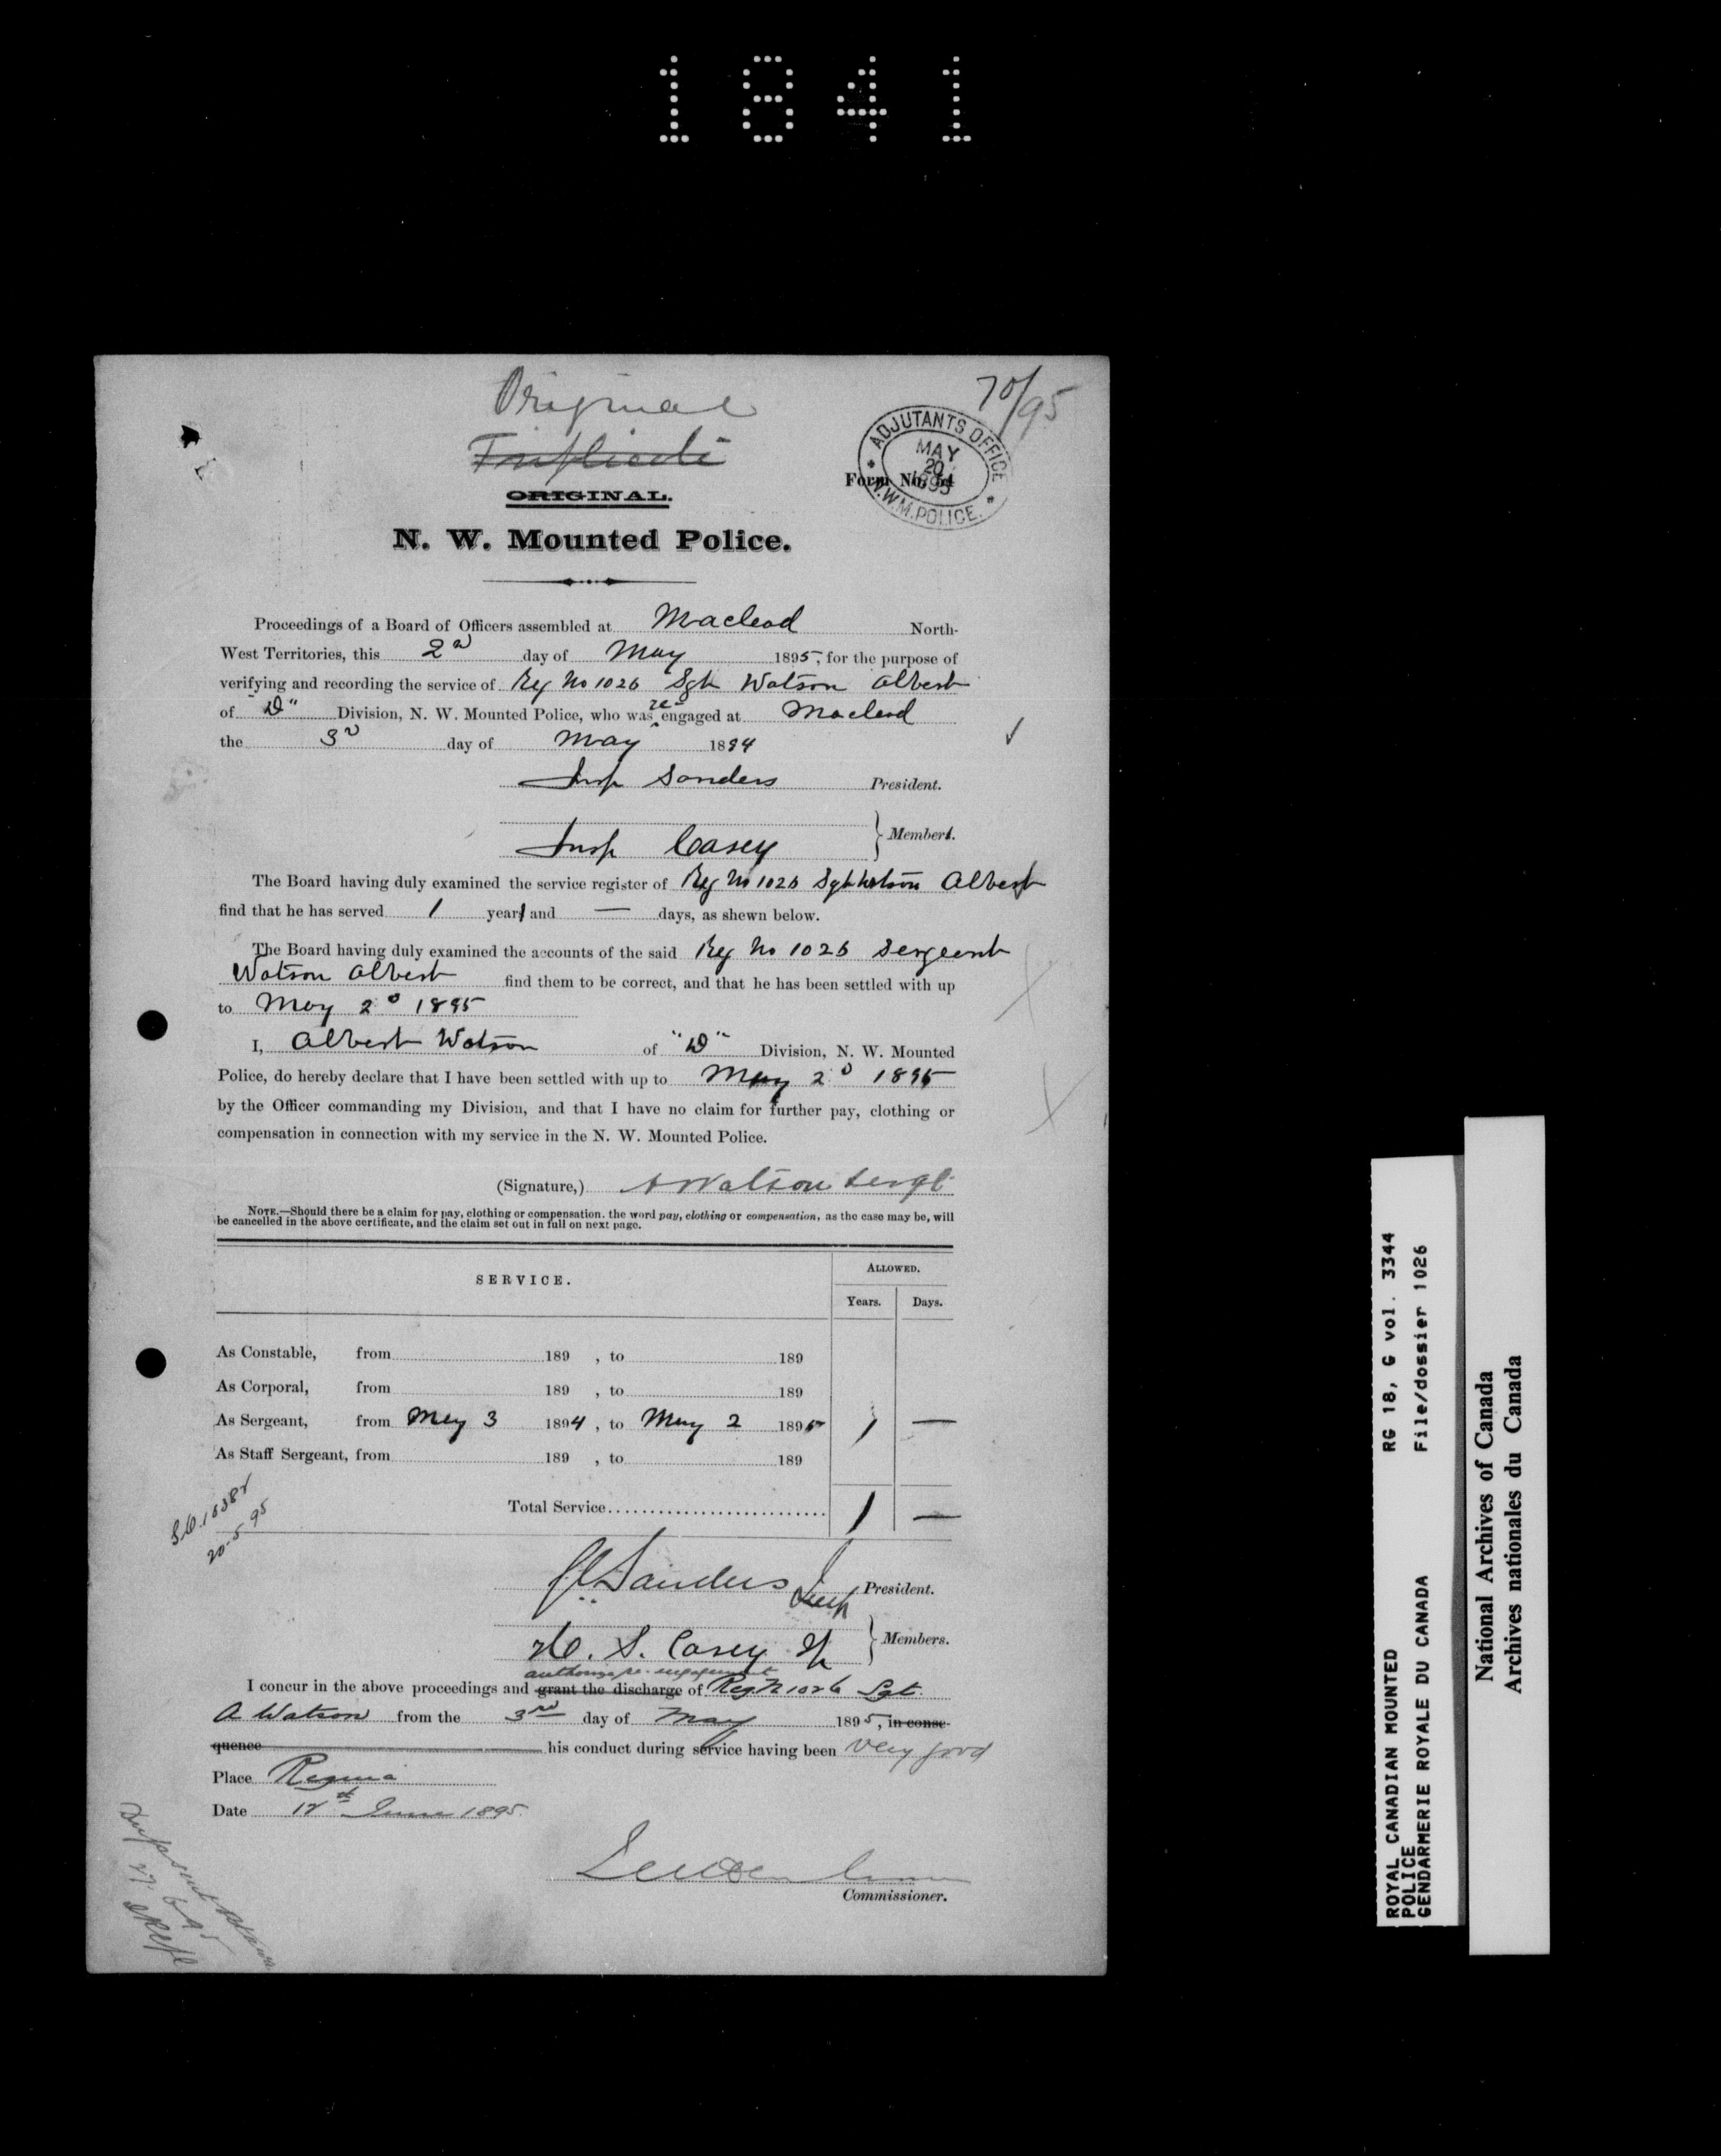 1841
Original
70/95
Triplicate
ORIGINAL.
ADJUTANTS OFFICE
MAY
20
1895
N.W.M. POLICE.
Form No. 54
N. W. Mounted Police.
Proceedings of a Board of Officers assembled at Macleod North-
West Territories, this 2nd day of May 1895, for the purpose of
verifying and recording the service of Reg No 1026 Sgt Watson Albert
of "D" Division, N. W. Mounted Police, who was re-engaged at Macleod
the 3rd day of May 1894
Insp Sanders President.
Insp Casey } Member.
The Board having duly examined the service register of Reg No 1026 Sgt Watson Albert
find that he has served 1 year and — days, as shewn below.
The Board having duly examined the accounts of the said Reg No 1026 Sergeant
Watson Albert find them to be correct, and that he has been settled with up
to May 2d 1895
I, Albert Watson of "D" Division, N. W. Mounted
Police, do hereby declare that I have been settled with up to May 2d 1895
by the Officer commanding my Division, and that I have no claim for further pay, clothing or
compensation in connection with my service in the N. W. Mounted Police.
(Signature,) A Watson Sergt.
NOTE.—Should there be a claim for pay, clothing or compensation. the word pay, clothing or compensation, as the case may be, will
be cancelled in the above certificate, and the claim set out in full on next page.
SERVICE.
ALLOWED.
Years. Days.
As Constable, from 189 , to 189
As Corporal, from 189 , to 189
As Sergeant, from May 3 1894, to May 2 1895 1 —
As Staff Sergeant, from 189 , to 189
Total Service 1 —
20-5-95
Sanders Insp President.
H. S. Casey Members.
authorize re-engagement
I concur in the above proceedings and grant the discharge of Reg No 1026 Sgt.
A Watson from the 3rd day of May 1895, in conse-
quence his conduct during service having been very good
Place Regina
Date 12th June 1895.
Commissioner.
ROYAL CANADIAN MOUNTED RG 18, G vol. 3344
POLICE
GENDARMERIE ROYALE DU CANADA File/dossier 1026
National Archives of Canada
Archives nationales du Canada